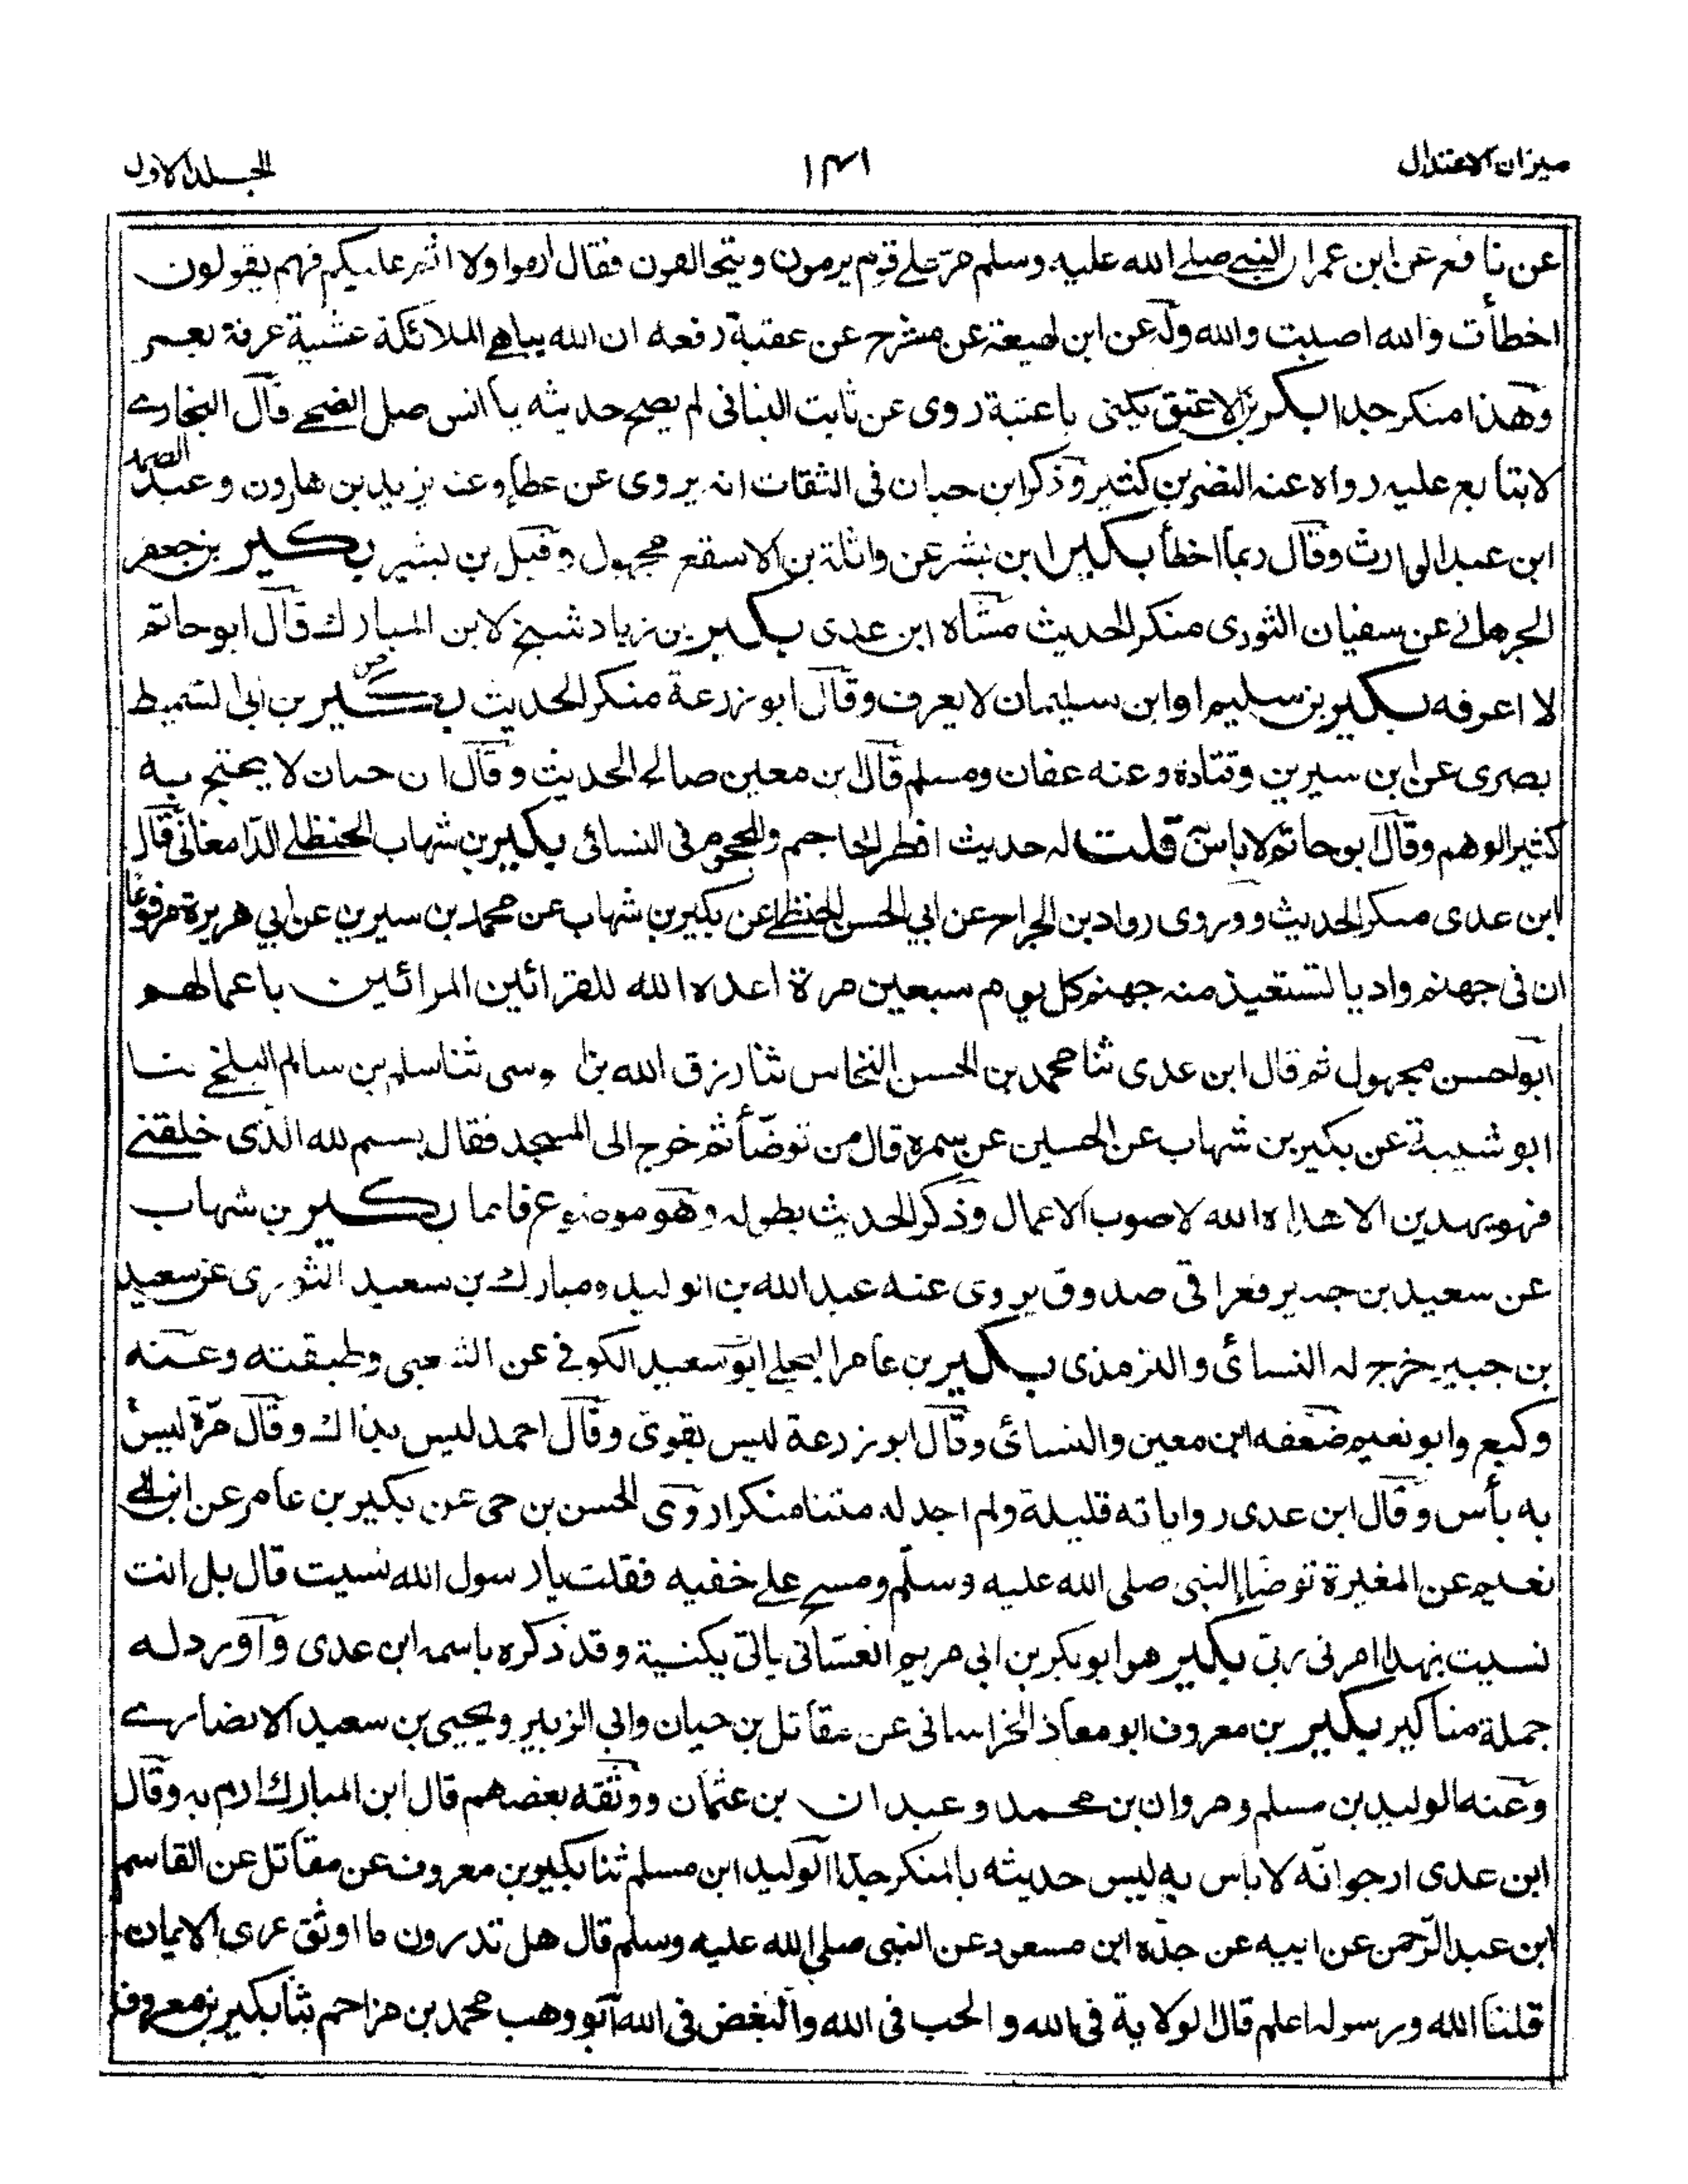 ميزان الاعتدال
١٤١
الجلد الاول
عن نافع عن ابن عمر ان النبي صلى الله عليه وسلم مر على قوم يرمون ويتحالفون فقال ارموا ولا اثم عليكم فهم يقولون
اخطأت والله اصبت والله وله عن ابن لهيعة عن مشرح عن عقبة رفعه ان الله يباهي الملائكة عشية عرفة بعمر
وهذا منكر جدا بكر بن الاعنق يكنى باعتبة روى عن ثابت البناني لم يصح حديثه يا انس صل الضحى قال البخارى
لا يتابع عليه رواه عنه النضر بن كثير وذكر ابن حبان فى الثقات انه يروى عن عطاء وعنه يزيد بن هارون وعبد الصمد
ابن عبد الوارث وقال ربما اخطأ بكير ابن بشر عن واثلة بن الاسقع مجهول وقيل بن بشير بكير بن جعفر
الجرجانى عن سفيان الثورى منكر الحديث مشاه ابن عدى بكير بن زياد شيخ لابن المبارك قال ابو حاتم
لا اعرفه بكير بن سليم او ابن سليمان لا يعرف وقال ابو زرعة منكر الحديث بكير ص بن ابى السميط
بصرى عن ابن سيرين وقتادة وعنه عفان ومسلم قال ابن معين صالح الحديث وقال ابن حبان لا يحتج به
كثير الوهم وقال ابو حاتم لا باس قلت له حديث افطر الحاجم والمحجوم فى النسائى بكير بن شهاب الحنظلى الدامغانى قال
ابن عدى منكر الحديث وروى رواد بن الجراح عن ابي الحسن الحنظلى عن بكير بن شهاب عن محمد بن سيرين عن ابي هريرة مرفوعا
ان فى جهنم واديا تستعيذ منه جهنم كل يوم سبعين مرة اعده الله للقرائين المرائين باعمالهم
ابو الحسن مجهول ثم قال ابن عدى ثنا محمد بن الحسن النخاس ثنا رزق الله بن موسى ثنا سلم بن سالم البلخى ثنا
ابو شيبة عن بكير بن شهاب عن الحسين عن سمرة قال من توضأ ثم خرج الى المسجد فقال بسم الله الذى خلقنى
فهو يهدين الا هداه الله لاصوب الاعمال وذكر الحديث بطوله وهو موضوع فاما بكير بن شهاب
عن سعيد بن جبير فعراقى صدوق يروى عنه عبد الله بن الوليد ومبارك بن سعيد الثورى عن سعيد
بن جبير خرج له النسائى والترمذى بكير بن عامر البجلى ابو سعيد الكوفى عن الشعبى وطبقته وعنه
وكيع وابو نعيم ضعفه ابن معين والنسائى وقال ابو زرعة ليس بقوى وقال احمد ليس بذاك وقال مرة ليس
به بأس وقال ابن عدى رواياته قليلة ولم اجد له متنا منكرا روى الحسن بن حى عن بكير بن عامر عن ابن ابى
نعيم عن المغيرة توضأ النبى صلى الله عليه وسلم ومسح على خفيه فقلت يا رسول الله نسيت قال بل انت
نسيت بهذا امرنى ربى بكير هو ابو بكر بن ابي مريم الغسانى ياتى بكنية وقد ذكره باسمه ابن عدى واورد له
جملة مناكير بكير بن معروف ابو معاذ الخراسانى عن مقاتل بن حيان وابي الزبير ويحيى بن سعيد الانصارى
وعنه الوليد بن مسلم ومروان بن محمد وعبدان بن عثمان ووثقه بعضهم قال ابن المبارك ارم به وقال
ابن عدى ارجو انه لا باس به ليس حديثه بالمنكر جدا الوليد ابن مسلم ثنا بكير بن معروف عن مقاتل عن القاسم
ابن عبد الرحمن عن ابيه عن جده ابن مسعود عن النبى صلى الله عليه وسلم قال هل تدرون ما اوثق عرى الايمان
قلنا الله ورسوله اعلم قال الولاية فى الله والحب فى الله والبغض فى الله ابو وهب محمد بن مزاحم ثنا بكير بن معروف